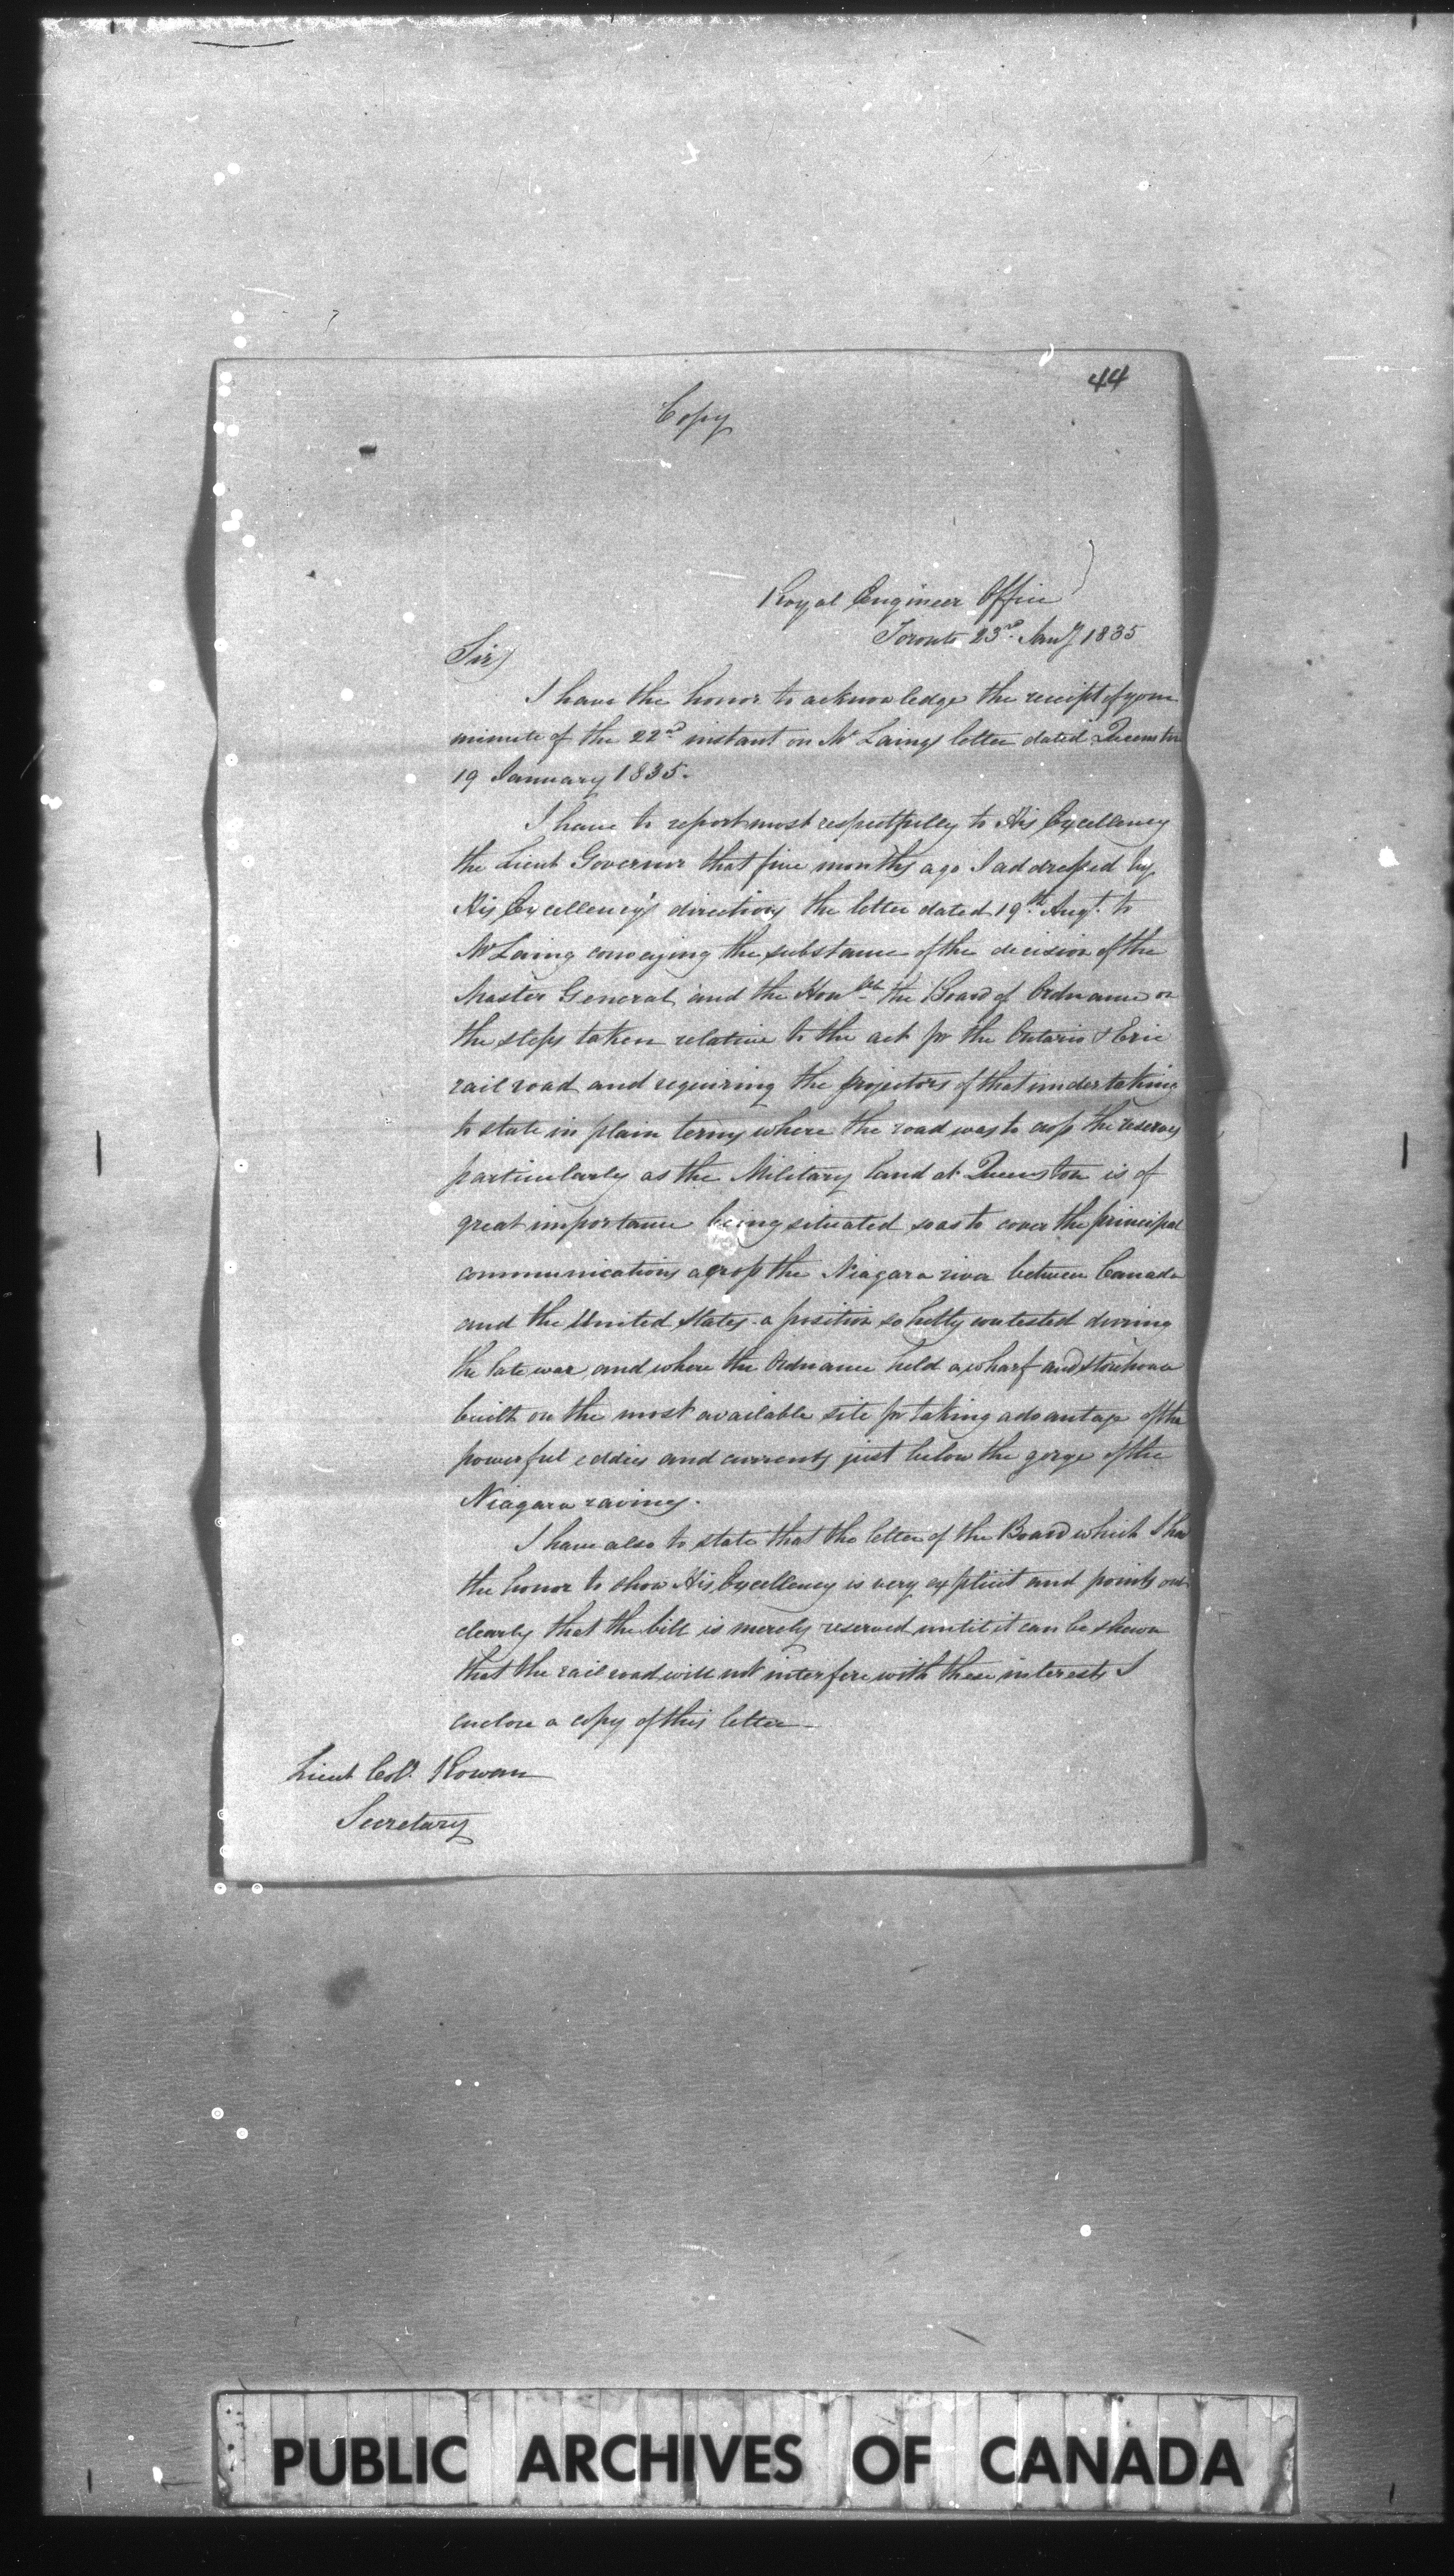 44
Copy
Royal Engineer Office
Toronto 23rd Jany 1835
Sir
I have the honor to acknowledge the receipt of your
minute of the 22nd instant on Mr Laings letter dated Queenston
19 January 1835.
I have to report most respectfully to His Excellency
the Lieut Governor that five months ago I addressed by
His Excellency's directions the letter dated 19th Augt. to
Mr Laing conveying the substance of the decision of the
Master General and the Honble the Board of Ordnance on
the steps taken relative to the act for the Ontario & Erie
rail road and requiring the projectors of that undertaking
to state in plain terms where the road was to cross the reserves
particularly as the Military land at Queenston is of
great importance being situated so as to cover the principal
communications across the Niagara river between Canada
and the United States - a position so hotly contested during
the late war and where the Ordnance held a wharf and storehouse
built on the most available site for taking advantage of the
powerful eddies and currents just below the gorge of the
Niagara ravines.
I have also to state that the letter of the Board which I had
the honor to show His Excellency is very explicit and points out
clearly that the bill is merely reserved until it can be shewn
that the rail road will not interfere with these interests I
enclose a copy of this letter -
Lieut Col. Rowan
Secretary
PUBLIC ARCHIVES OF CANADA